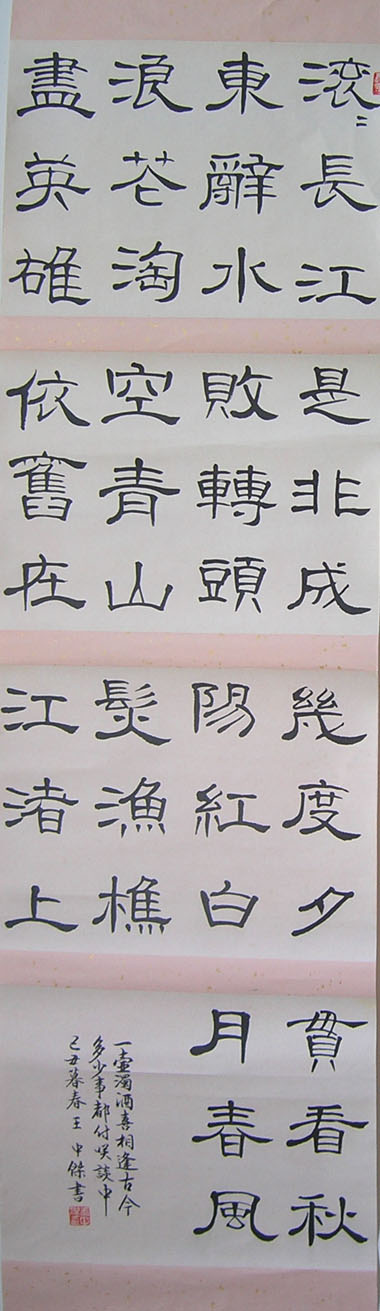 滚〻長江
東辭水
浪花淘
盡英雄
是非成
敗轉頭
空青山
依舊在
幾度夕
陽紅白
髮漁樵
江渚上
貫看秋
月春風
一壺濁酒喜相逢古今
多少事都付咲談中
己丑暮春王中傑書